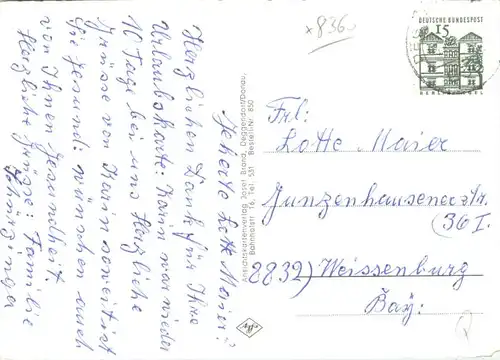 x 836
DEUTSCHE BUNDESPOST
15
Geherte Lotte Maier!
Herzlichen Dank für Ihre
Urlaubskarte: Karin war wieder
10 Tage bei uns Herzliche
Grüsse von Karin soweit ist
Sie gesund: wünschen auch
von Ihnen Gesundheit.
Herzliche Grüsse: Familie
Ansichtskartenverlag Josef Brandl, Deggendorf/Donau,
Bahnhofstr. 16, Tel. 531 Bestell-Nr. 850
Frl:
Lotte Maier
Gunzenhausenerstr
(36 I.
8832) Weissenburg
Bay: